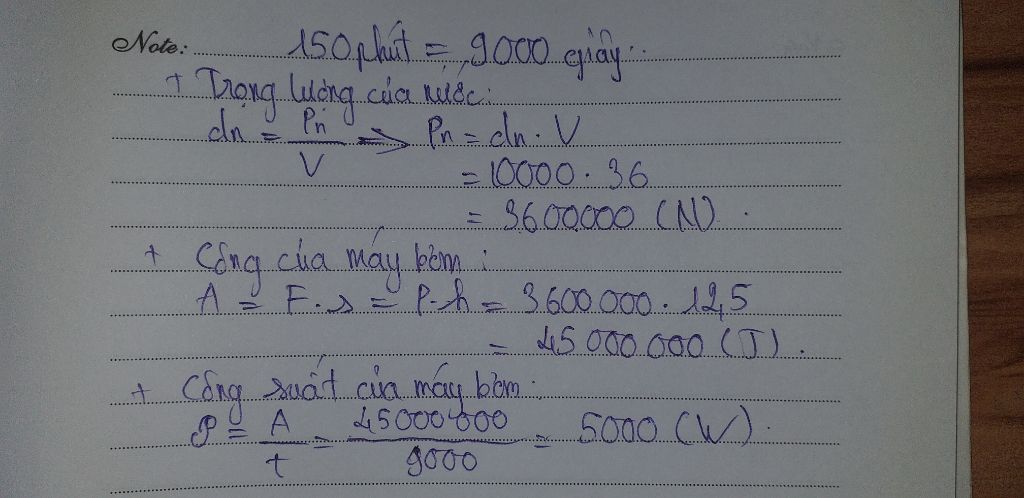 Note: 150 phút = 9000 giây.
+ Trọng lượng của nước:
dn = Pn / V => Pn = dn . V
= 10000 . 36
= 3600000 (N).
+ Công của máy bơm:
A = F.s = P.h = 3600000 . 12,5
= 45000000 (J).
+ Công suất của máy bơm:
P = A / t = 45000000 / 9000 = 5000 (W).